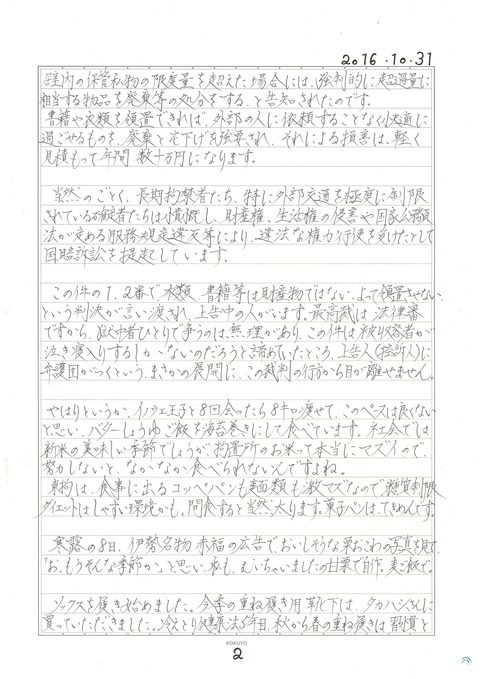 2016.10.31
室内の保管私物の限度量を超えた場合には、強制的に超過量に
相当する物品を廃棄等の処分をする、と告知されたのです。
書籍や衣類を領置できれば、外部の人に依頼することなく快適に
過ごせるものを、廃棄と宅下げを強要され、それによる損害は、軽く
見積もって年間 数十万円になります。
当然のごとく、長期拘禁者たち、特に外部交通を極度に制限
されている確定者たちは憤慨し、財産権、生活権の侵害や国家公務員
法が定める服務規定違反等により、違法な権力行使を受けたとして
国賠訴訟を提起しています。
この件の1、2審で「衣類、書籍等は財産物ではない、よって領置させない」
という判決が言い渡され、上告中の人がいます。最高裁は法律審
ですから、獄中者ひとりで争うのは無理があり、この件は被収容者が
泣き寝入りするしかないのだろうと諦めていたところ、上告人(控訴人)に
弁護団がつくという、まさかの展開に、この裁判の行方から目が離せません。
やはりというか、イノウエ王子と8回会ったら8キロ痩せて、このペースは良くない
と思い、バターしょうゆご飯を海苔巻きにして食べています。社会では
新米の美味しい季節でしょうが、拘置所のお米って本当にマズイので、
努力しないと、なかなか食べられないんですよね。
東拘は、食事に出るコッペパンも麺類も激マズなので、糖質制限
ダイエットはしやすい環境かも。間食すると当然、太ります。菓子パンは、てきめんです。
寒露の8日、伊勢名物 赤福の広告で、おいしそうな栗おこわの写真を見て、
「お、もうそんな季節か」と思い、私も、むいちゃいましたの甘栗で自作。麦ご飯で。
ソックスを履き始めました。今季の重ね履き用靴下は、タカハシさんに
買っていただきました。冷えとり健康法5年目、秋から春の重ね履きは習慣と
KOKUYO
2